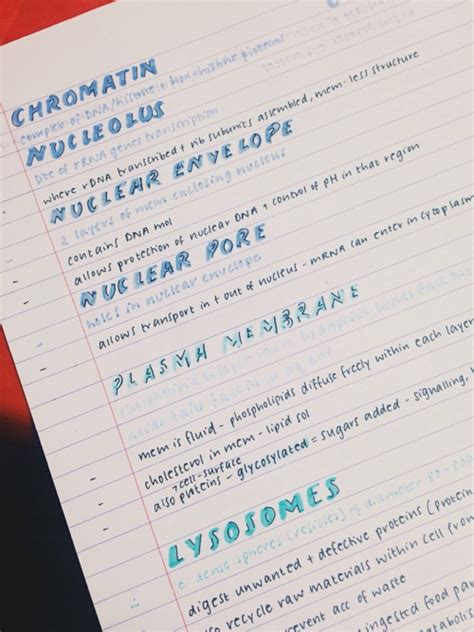 CHROMATIN
complex of DNA/histone + non-histone proteins
NUCLEOLUS
site of rRNA genes transcription
where rDNA transcribed + rib subunits assembled, mem-less structure
NUCLEAR ENVELOPE
2 layers of mem enclosing nucleus
contains DNA mol
allows protection of nuclear DNA + control of pH in that region
NUCLEAR PORE
holes in nuclear envelope
allows transport in + out of nucleus - mRNA can enter in cytoplasm
PLASMA MEMBRANE
phospholipid bilayer
mem is fluid - phospholipids diffuse freely within each layer
cholesterol in mem - lipid sol
→ cell-surface
also proteins - glycosylated = sugars added - signalling,
LYSOSOMES
dense spheres (vesicles) of diameter
digest unwanted + defective proteins (protein
so recycle raw materials within cell from
prevent acc of waste
ingested food